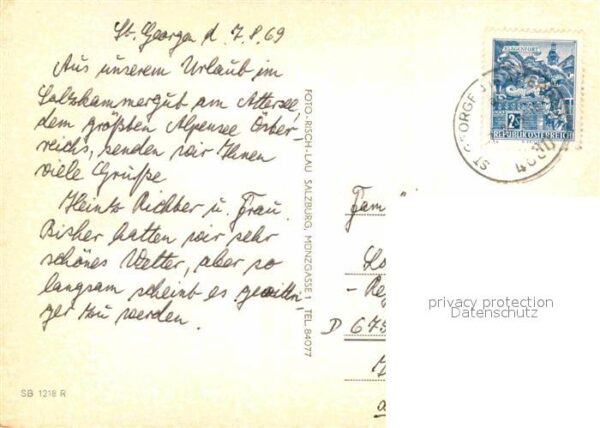 St. Georgen d. 7.8.69
Aus unserem Urlaub im
Salzkammergut am Attersee,
dem größten Alpensee Öster-
reichs, senden wir Ihnen
viele Grüße
Heintz Richter u. Frau.
Bisher hatten wir sehr
schönes Wetter, aber so
langsam scheint es gewittri-
ger zu werden.
SB 1218 R
FOTO-RISCH-LAU SALZBURG, MÜNZGASSE 1 TEL. 84077
KLAGENFURT
2S
REPUBLIK ÖSTERREICH
ST. GEORGE
4880
Fam
D 675
privacy protection
Datenschutz